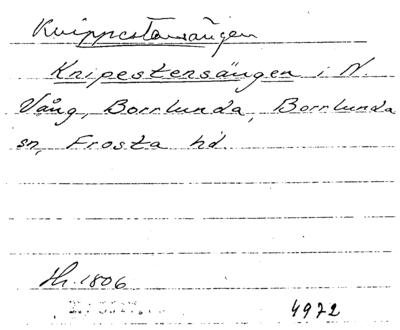 Knippestensängen
Knipestensängen i N.
Vång, Borrlunda, Borrlunda
sn, Frosta hd.
Hr. 1806
4972